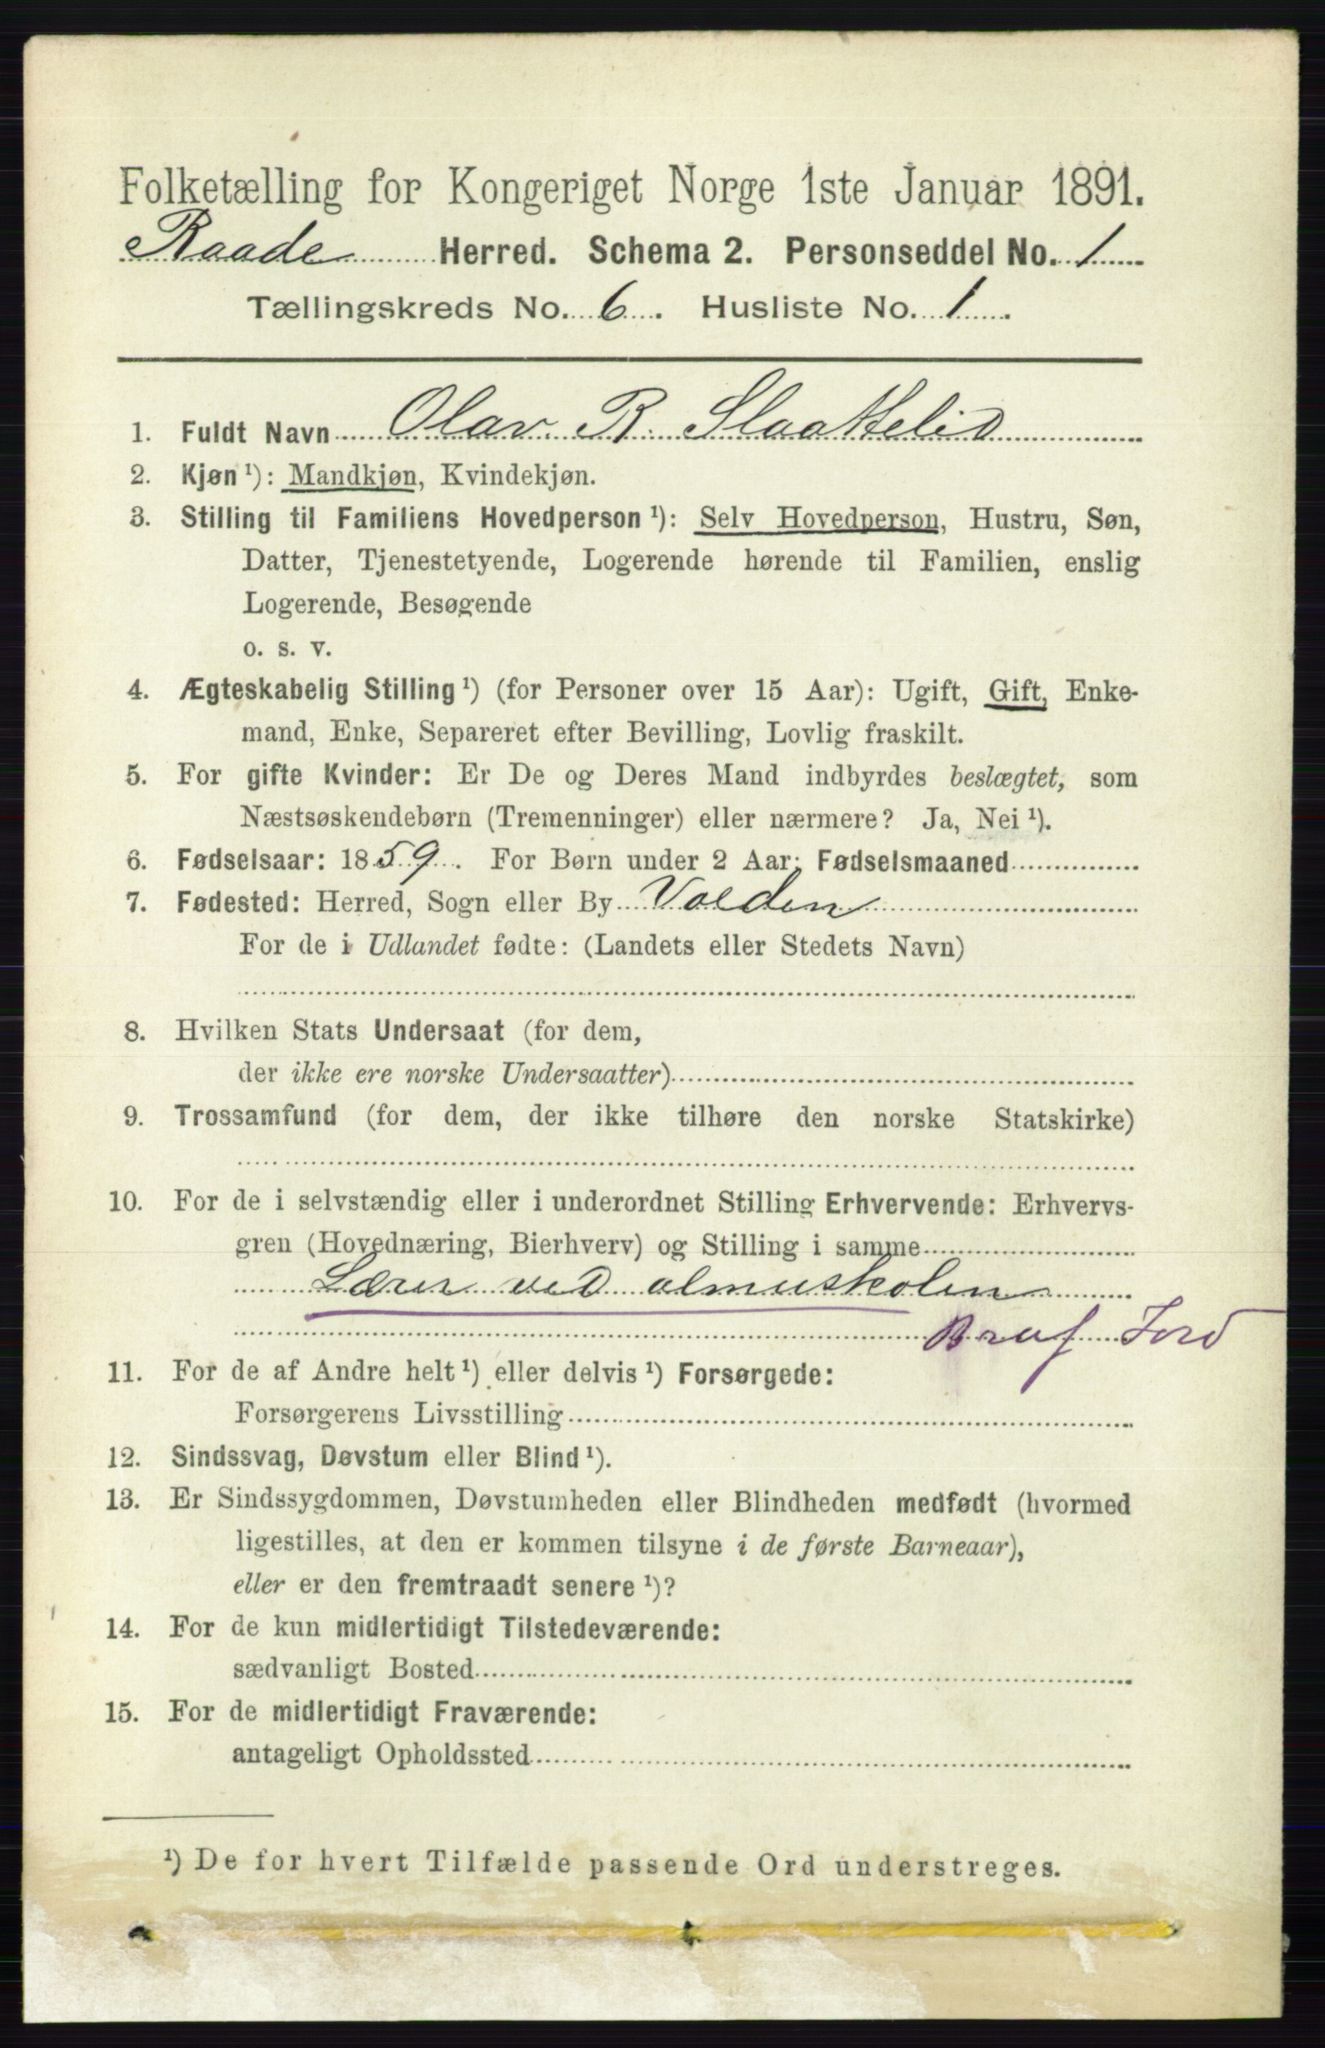 Folketælling for Kongeriget Norge 1ste Januar 1891.
Raade Herred. Schema 2. Personseddel No. 1
Tællingskreds No. 6. Husliste No. 1.
1. Fuldt Navn Olav R. Slaattelid
2. Kjøn ¹): Mandkjøn, Kvindekjøn.
3. Stilling til Familiens Hovedperson ¹): Selv Hovedperson, Hustru, Søn,
Datter, Tjenestetyende, Logerende hørende til Familien, enslig
Logerende, Besøgende
o. s. v.
4. Ægteskabelig Stilling ¹) (for Personer over 15 Aar): Ugift, Gift, Enke-
mand, Enke, Separeret efter Bevilling, Lovlig fraskilt.
5. For gifte Kvinder: Er De og Deres Mand indbyrdes beslægtet, som
Næstsøskendebørn (Tremenninger) eller nærmere? Ja, Nei ¹).
6. Fødselsaar: 1859. For Børn under 2 Aar: Fødselsmaaned
7. Fødested: Herred, Sogn eller By Volden
For de i Udlandet fødte: (Landets eller Stedets Navn)
8. Hvilken Stats Undersaat (for dem,
der ikke ere norske Undersaatter)
9. Trossamfund (for dem, der ikke tilhøre den norske Statskirke)
10. For de i selvstændig eller i underordnet Stilling Erhvervende: Erhvervs-
gren (Hovednæring, Bierhverv) og Stilling i samme
Lærer ved almuskolen
Jord
11. For de af Andre helt ¹) eller delvis ¹) Forsørgede:
Forsørgerens Livsstilling
12. Sindssvag, Døvstum eller Blind ¹).
13. Er Sindssygdommen, Døvstumheden eller Blindheden medfødt (hvormed
ligestilles, at den er kommen tilsyne i de første Barneaar),
eller er den fremtraadt senere ¹)?
14. For de kun midlertidigt Tilstedeværende:
sædvanligt Bosted
15. For de midlertidigt Fraværende:
antageligt Opholdssted
¹) De for hvert Tilfælde passende Ord understreges.